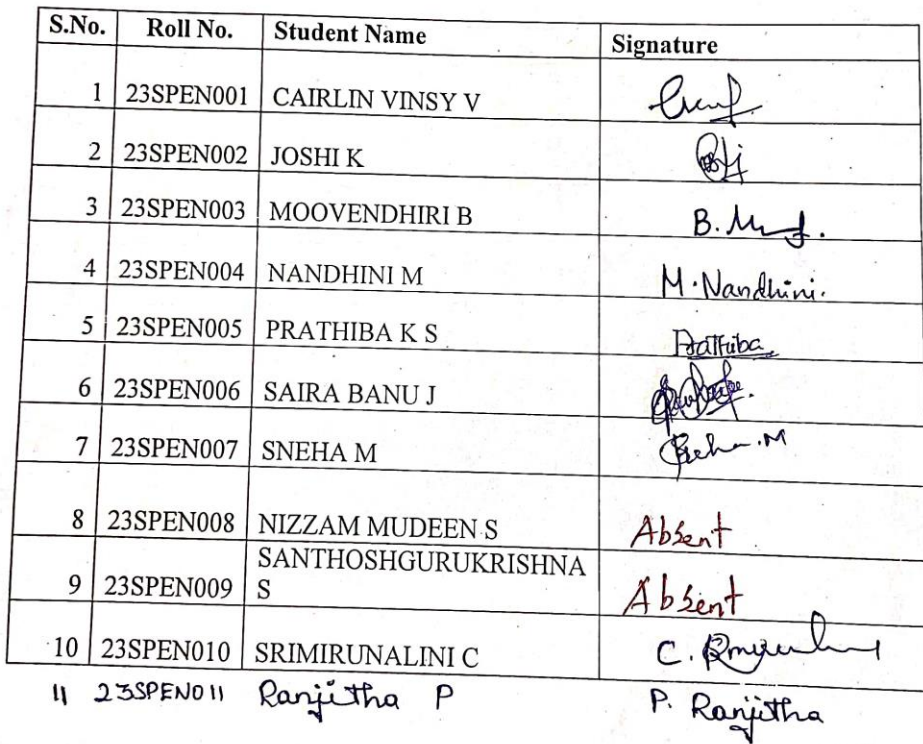 S.No. Roll No. Student Name Signature
1 23SPEN001 CAIRLIN VINSY V
2 23SPEN002 JOSHI K
3 23SPEN003 MOOVENDHIRI B B.
4 23SPEN004 NANDHINI M M. Nandhini.
5 23SPEN005 PRATHIBA K S
6 23SPEN006 SAIRA BANU J
7 23SPEN007 SNEHA M
8 23SPEN008 NIZZAM MUDEEN S Absent
SANTHOSHGURUKRISHNA
9 23SPEN009 S Absent
10 23SPEN010 SRIMIRUNALINI C C.
11 23SPEN011 Ranjitha P P. Ranjitha